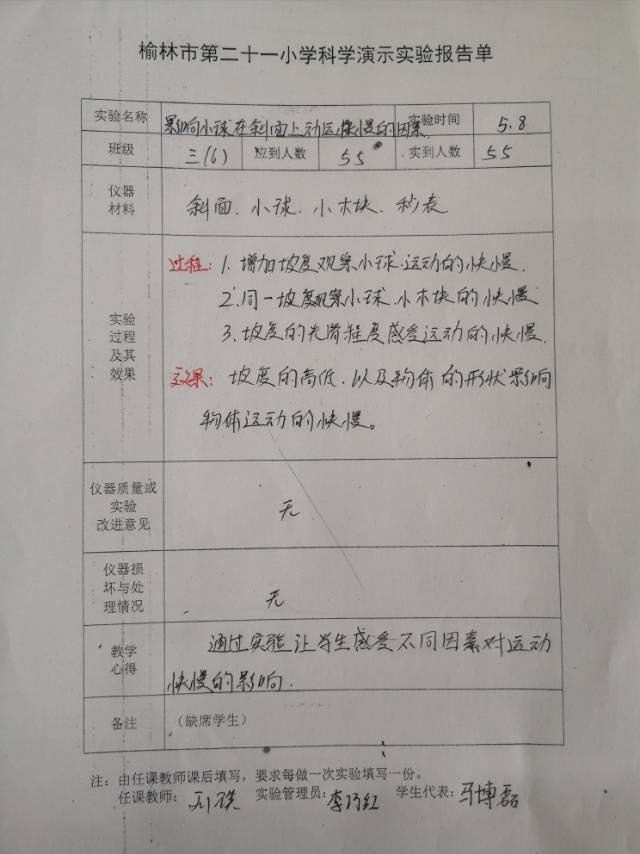 榆林市第二十一小学科学演示实验报告单
实验名称 影响小球在斜面上运动快慢的因素 实验时间 5.8
班级 三(6) 应到人数 55 实到人数 55
仪器
材料
斜面、小球、小木块、秒表
实验
过程
及其
效果
过程：1. 增加坡度观察小球运动的快慢.
2. 同一坡度观察小球.小木块的快慢
3. 坡度的光滑程度感受运动的快慢.
效果：坡度的高低.以及物体的形状影响
物体运动的快慢。
仪器质量或
实验
改进意见
无
仪器损
坏与处
理情况
无
教学
心得
通过实验让学生感受不同因素对运动
快慢的影响.
备注 （缺席学生）
注：由任课教师课后填写，要求每做一次实验填写一份。
任课教师： 实验管理员：李巧红 学生代表：马博磊